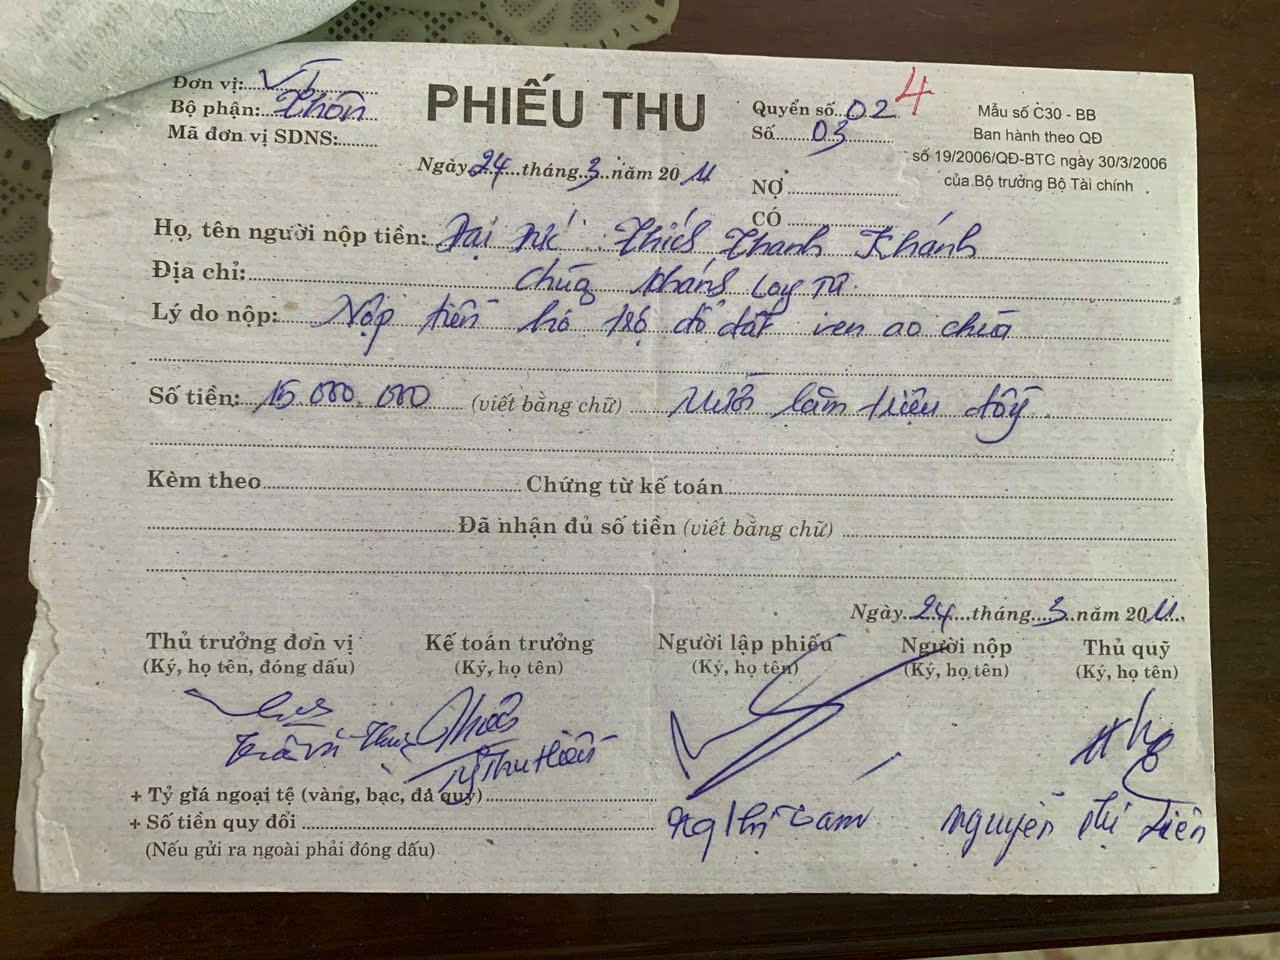 Đơn vị:
Bộ phận: Thôn
Mã đơn vị SDNS:
PHIẾU THU
Ngày 24 tháng 3 năm 2011
Quyển số 02 4
Số 03
NỢ
CÓ
Mẫu số C30 - BB
Ban hành theo QĐ
số 19/2006/QĐ-BTC ngày 30/3/2006
của Bộ trưởng Bộ Tài chính
Họ, tên người nộp tiền: Đại đức Thích Thanh Khánh
Địa chỉ: Chùa Khánh
Lý do nộp: Nộp tiền hỗ trợ đổ đất ven ao chùa
Số tiền: 15.000.000 (viết bằng chữ) Mười lăm triệu đồng
Kèm theo Chứng từ kế toán
Đã nhận đủ số tiền (viết bằng chữ)
Ngày 24 tháng 3 năm 2011
Thủ trưởng đơn vị Kế toán trưởng Người lập phiếu Người nộp Thủ quỹ
(Ký, họ tên, đóng dấu) (Ký, họ tên) (Ký, họ tên) (Ký, họ tên) (Ký, họ tên)
Thu Hiền
+ Tỷ giá ngoại tệ (vàng, bạc, đá quý)
+ Số tiền quy đổi
Ng Thị Nguyễn Thị
(Nếu gửi ra ngoài phải đóng dấu)